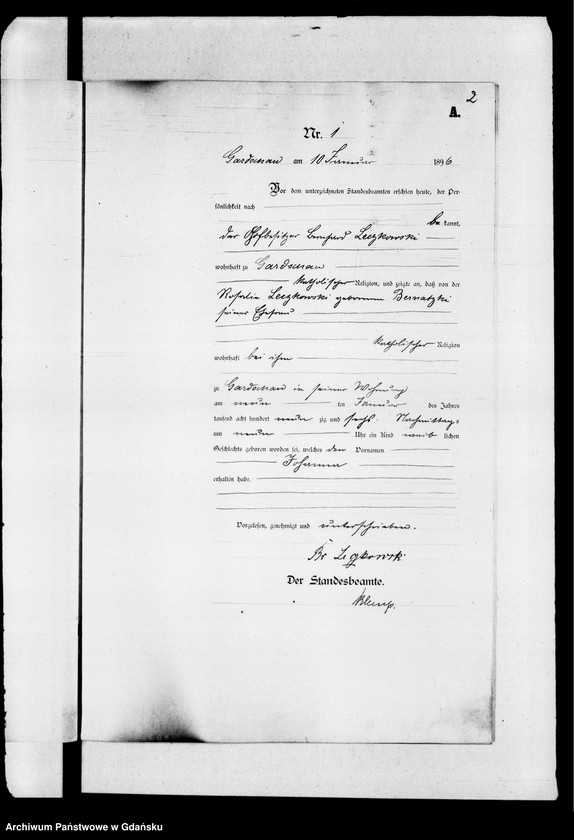 2
A.
Nr. 1
Gardschau am 10 Januar 1896
Vor dem unterzeichneten Standesbeamten erschien heute, der Per-
sönlichkeit nach
be kannt,
der Hofbesitzer Bernhard Leczkowski
wohnhaft zu Gardschau
katholischer Religion, und zeigte an, daß von der
Rosalie Leczkowski geborenen Bernatzki
seiner Ehefrau
katholischer Religion
wohnhaft bei ihm
zu Gardschau in seiner Wohnung
am neun ten Januar des Jahres
tausend acht hundert neun zig und sechs Nachmittags
um neun Uhr ein Kind weib lichen
Geschlechts geboren worden sei, welches den Vornamen
Johanna
erhalten habe.
Vorgelesen, genehmigt und unterschrieben.
Leczkowski
Der Standesbeamte.
Archiwum Państwowe w Gdańsku